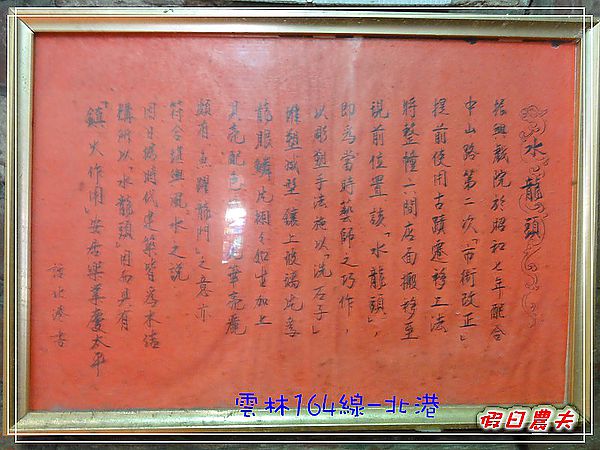 水龍頭
振興戲院於昭和七年配合
中山路第二次「市街改正」
提前使用古蹟遷移工法
將整幢六間店面搬移至
現前位置該「水龍頭」,
即為當時藝師之巧作,
以彫塑手法施以「洗石子」
雕塑成型鑲上玻璃片為
龍眼鱗片栩栩如生加上
其亮配色 華亮麗
頗有魚躍龍門之意亦
符合堪輿風水之說
因日據時代建築皆為木結
構所以「水龍頭」因而具有
「鎮火作用」安居樂業慶太平
許北港書
雲林164線-北港
假日農夫